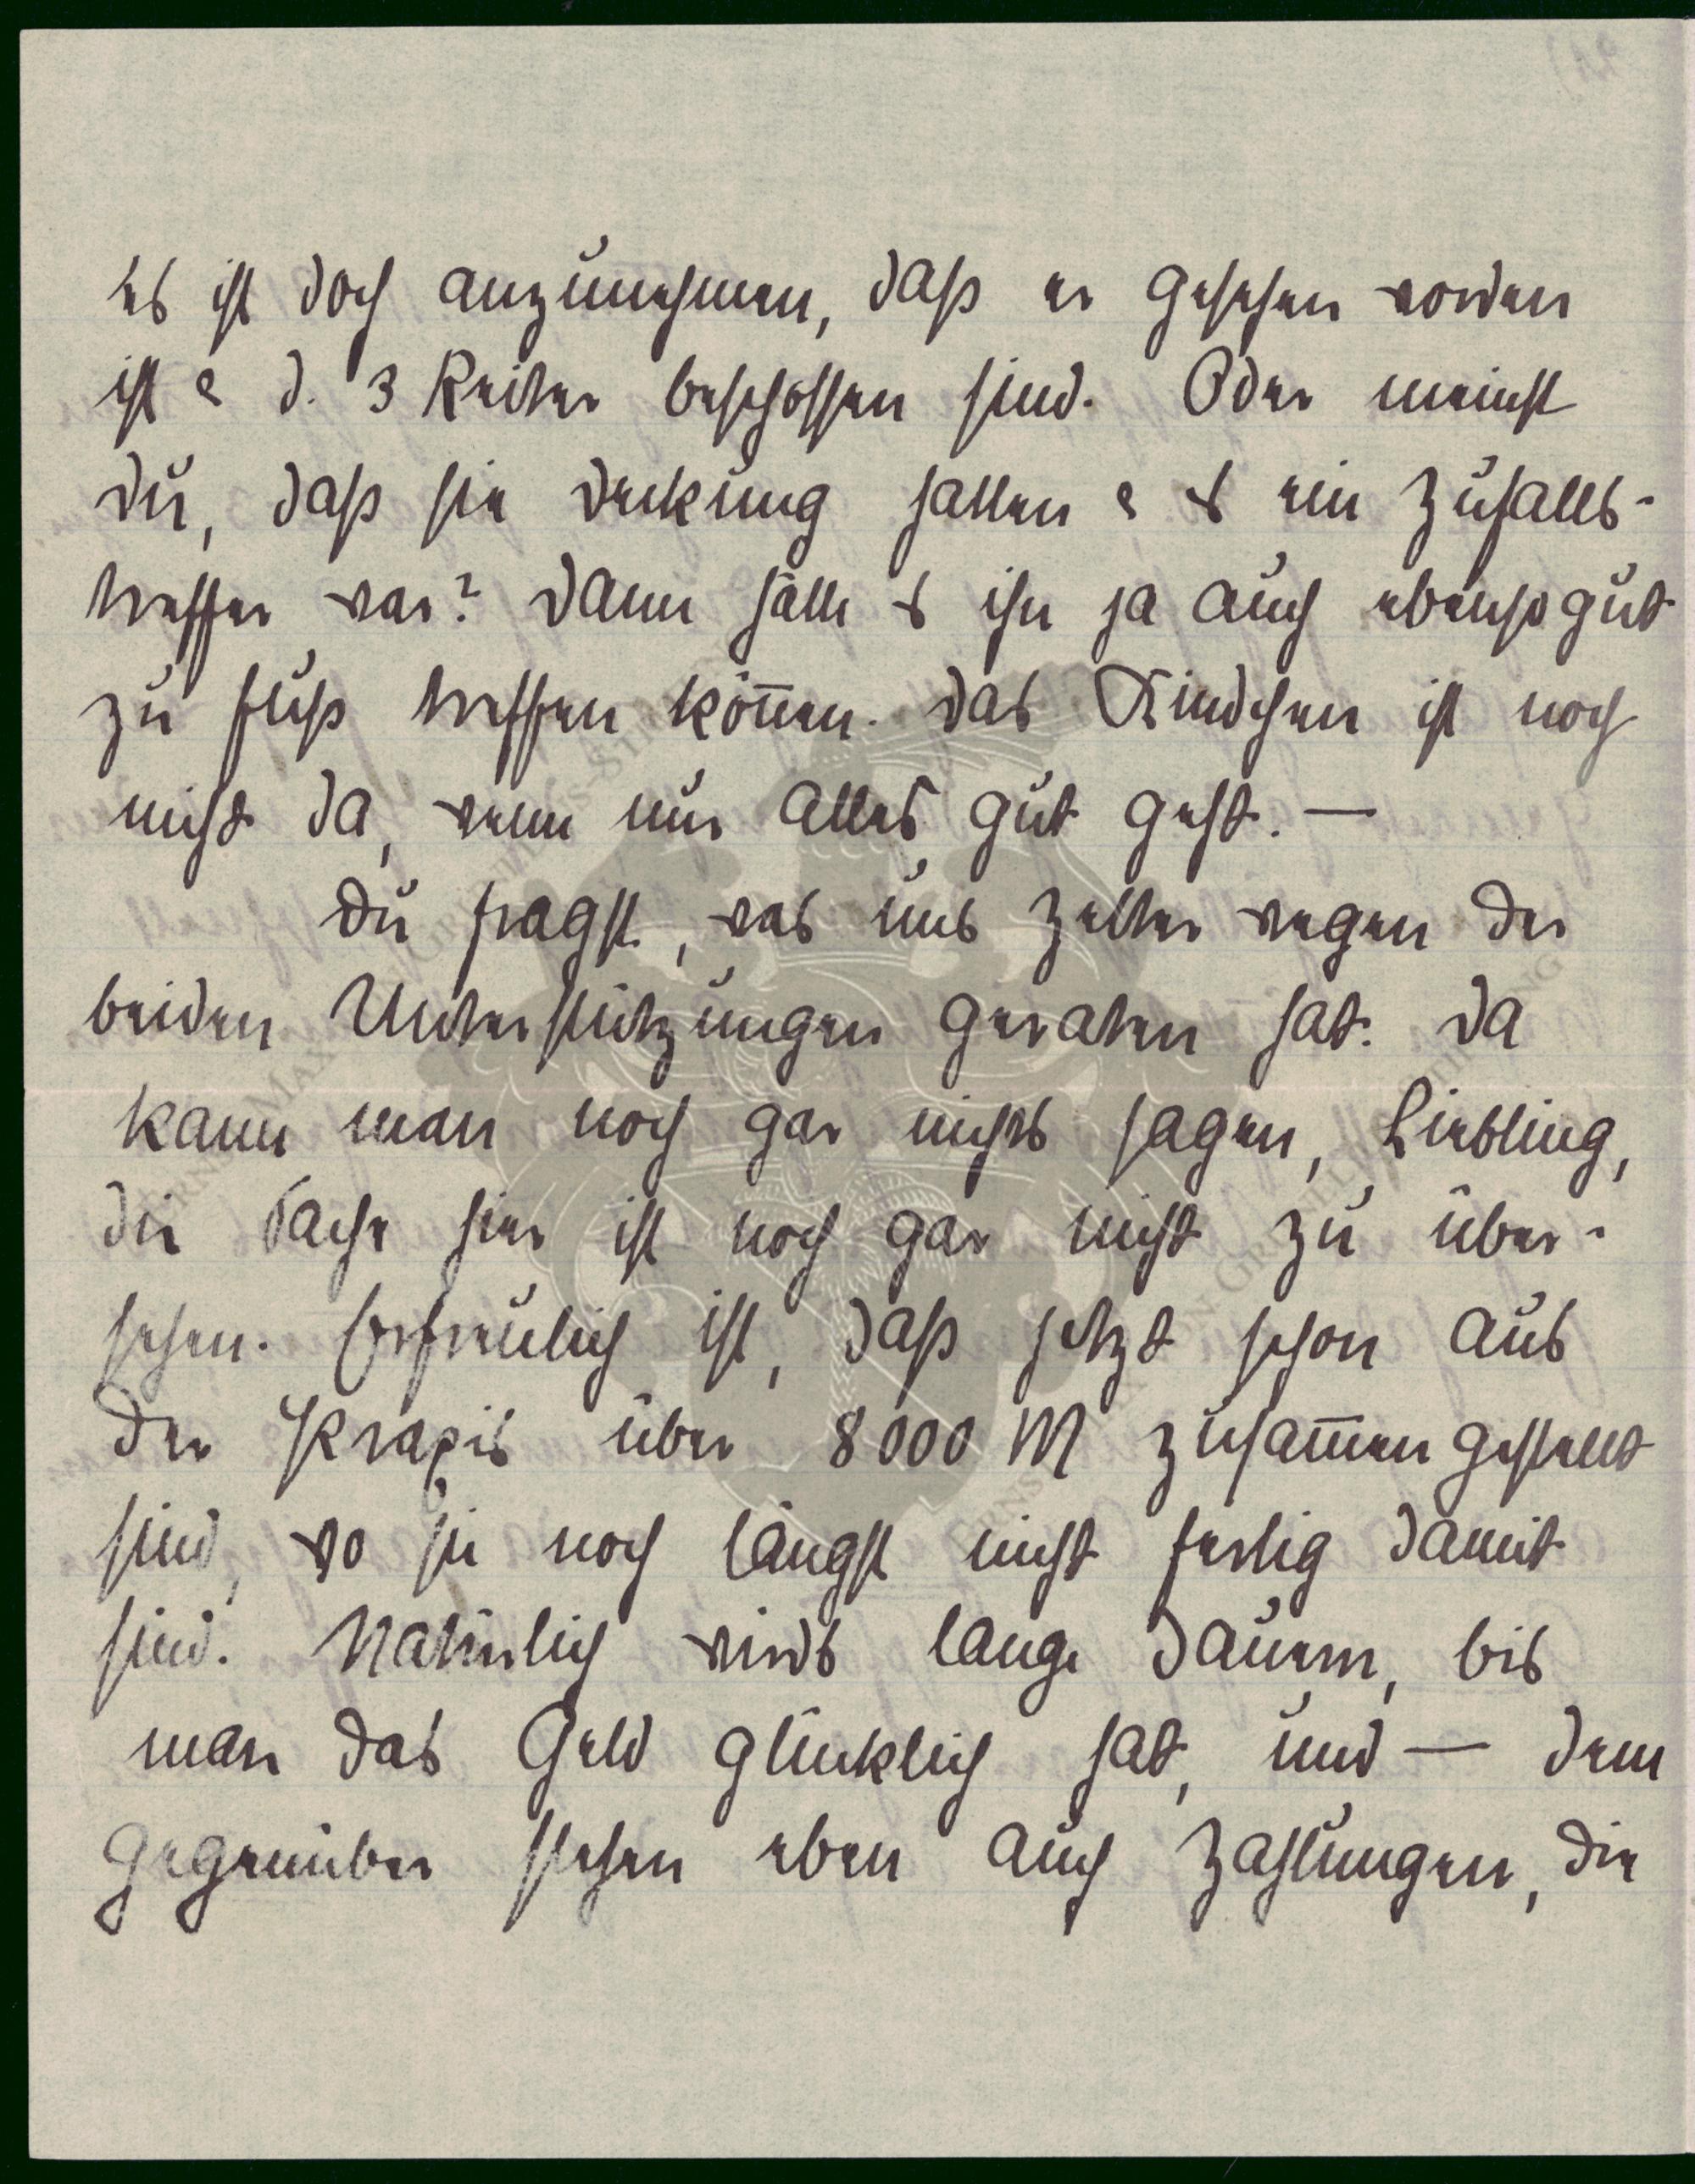 Es ist doch anzunehmen, daß er gesehen worden
ist & d. 3 Reiter beschossen sind. Oder meinst
du, daß sie Deckung hatten & es ein Zufalls-
treffer war? Dann hätte es ihn ja auch ebenso gut
zu Fuß treffen können. Das Kindchen ist noch
nicht da, wenn nur alles gut geht. —
Du fragst, was uns Zelter wegen der
beiden Unterstützungen geraten hat. Da
kann man noch gar nichts sagen, Liebling,
die Sache hier ist noch gar nicht zu über-
sehen. Erfreulich ist, daß jetzt schon aus
der Praxis über 8000 M zusammengestellt
sind, wo sie noch längst nicht fertig damit
sind. Natürlich wirds lange dauern, bis
man das Geld glücklich hat, und — dem
gegenüber stehen eben auch Zahlungen, die